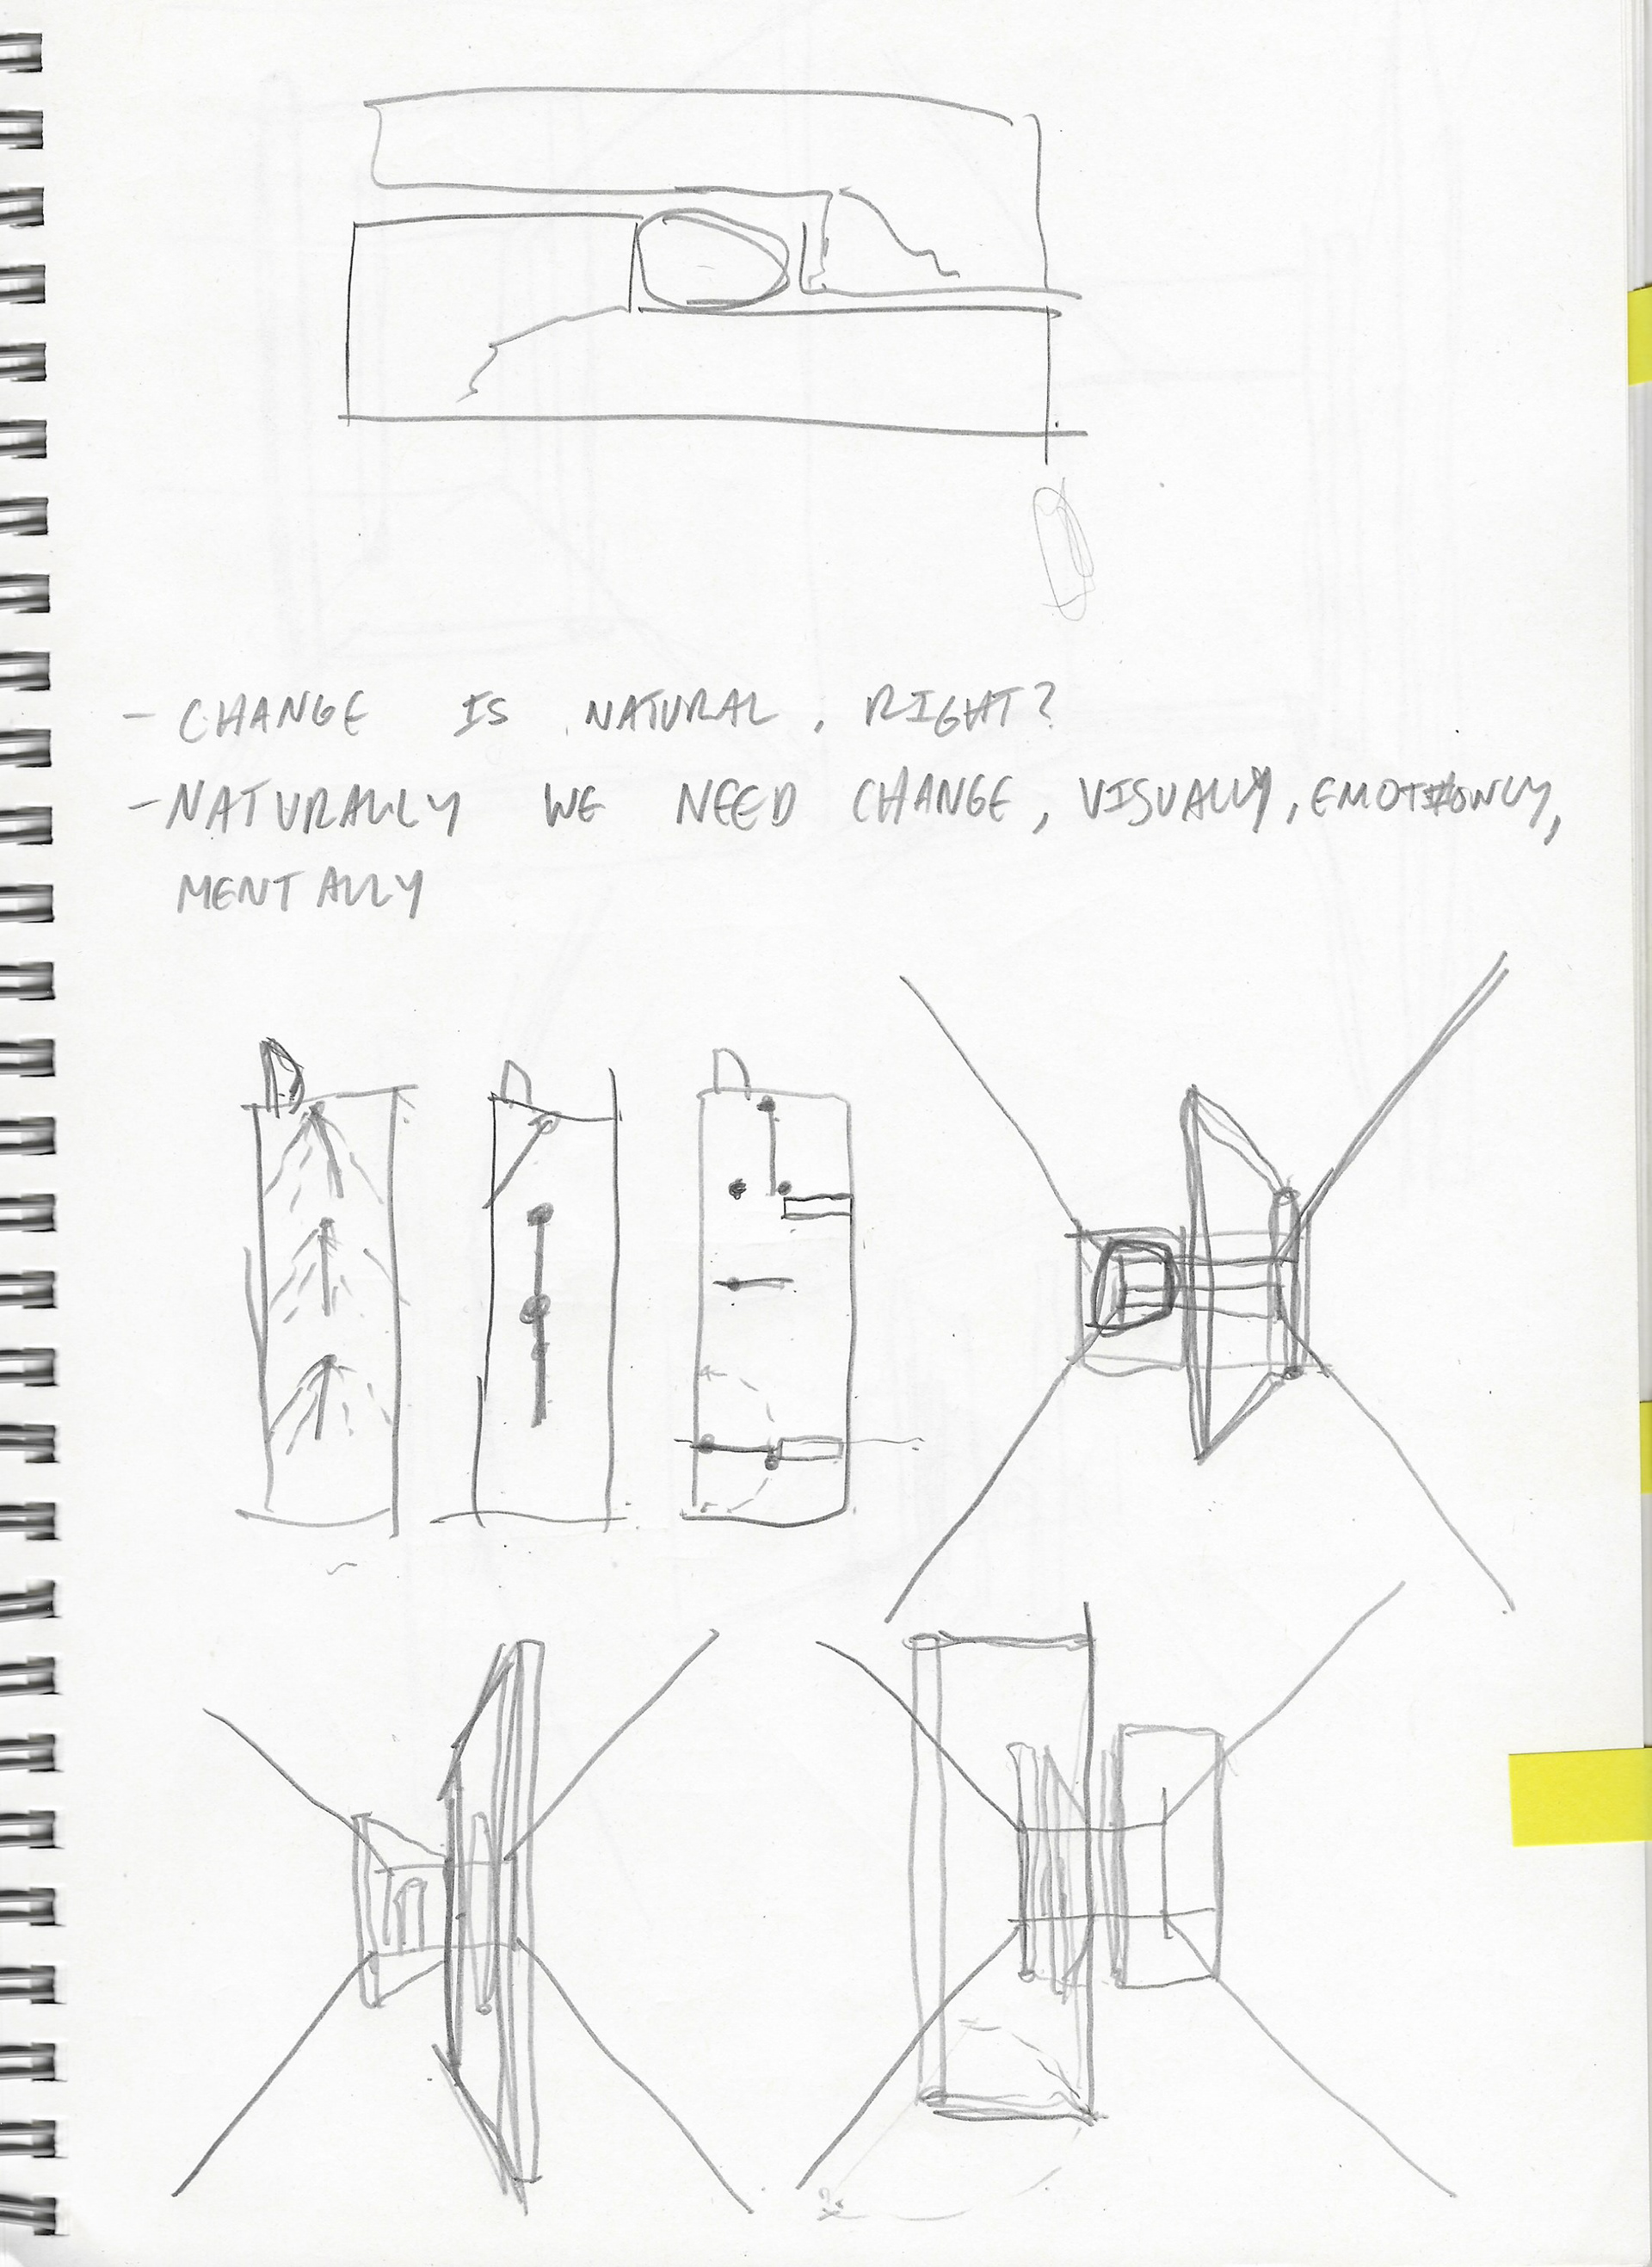 - CHANGE IS NATURAL, RIGHT?
- NATURALLY WE NEED CHANGE, VISUALLY, EMOTIONLY,
MENTALLY